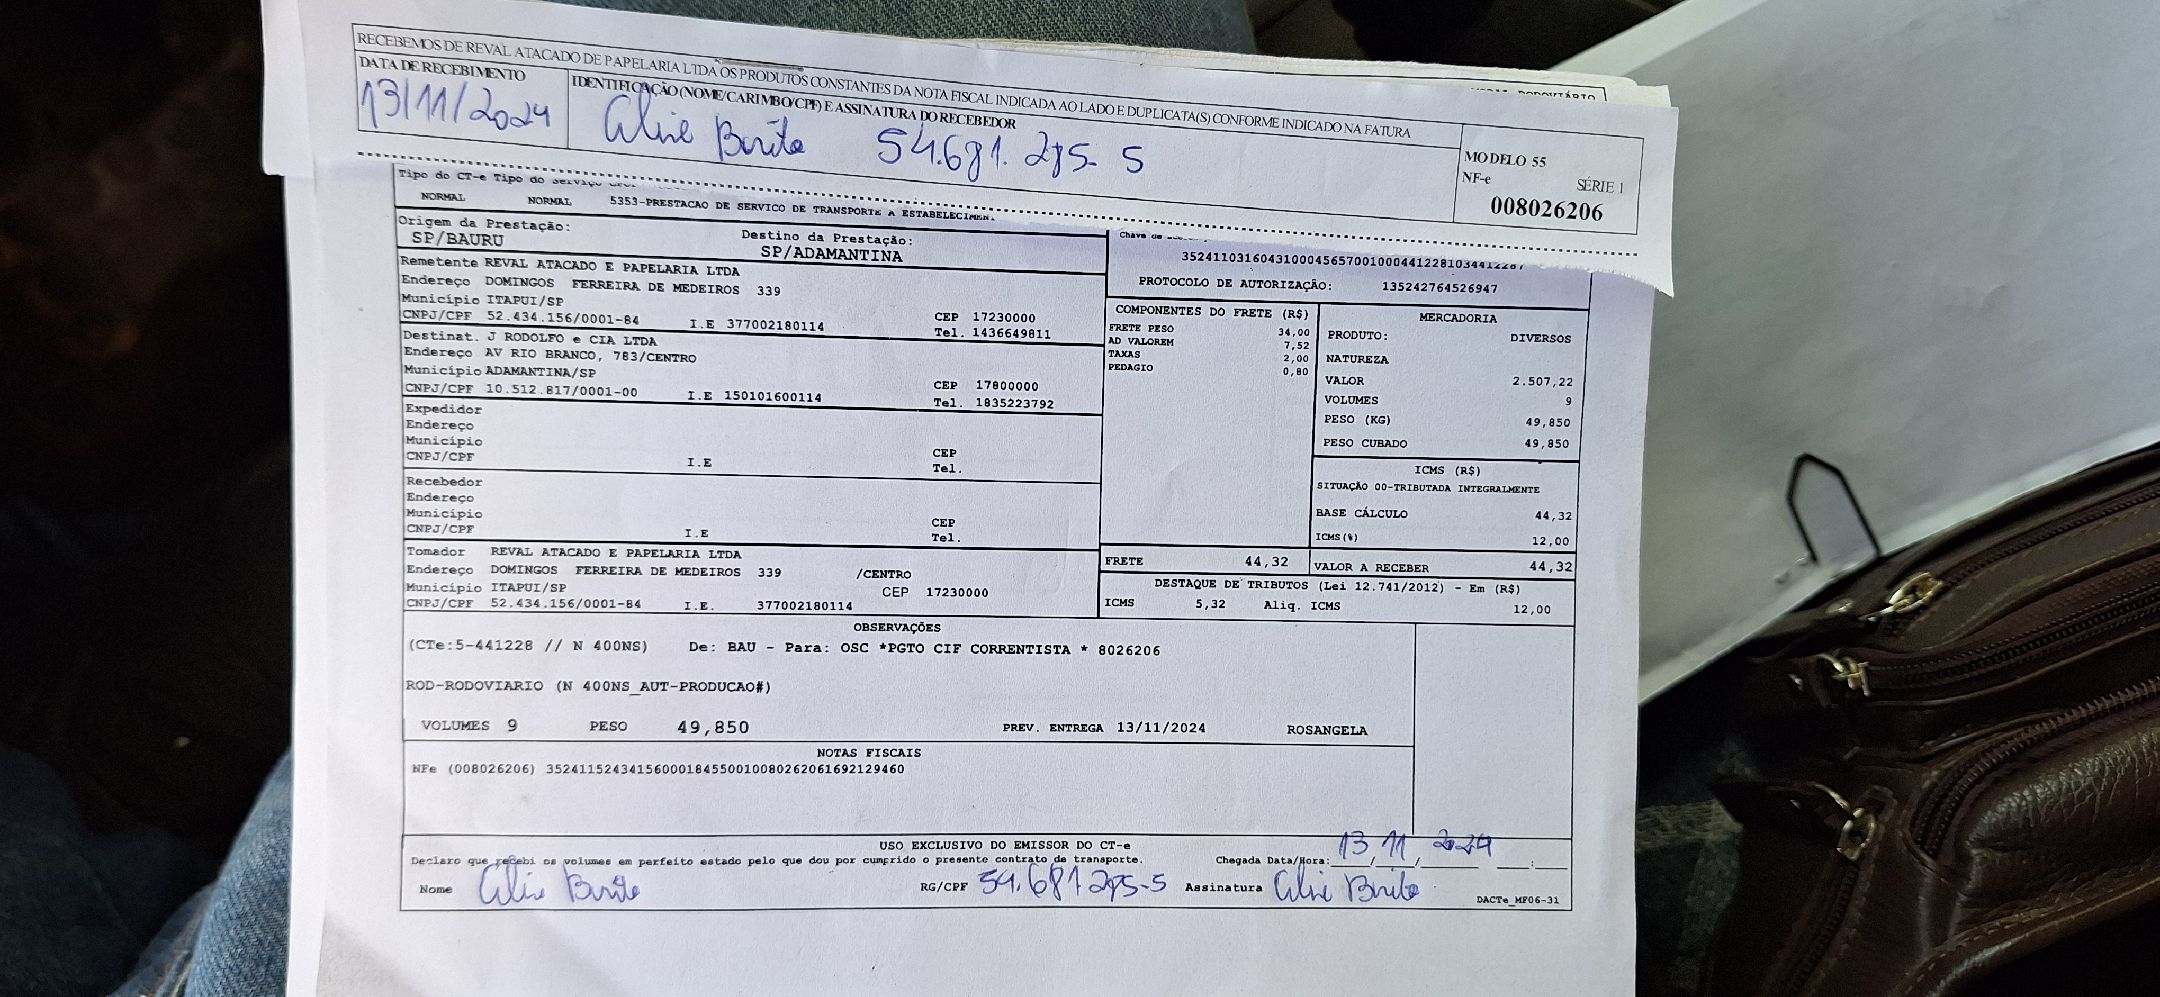 RECEBEMOS DE REVAL ATACADO DE PAPELARIA LTDA OS PRODUTOS CONSTANTES DA NOTA FISCAL INDICADA AO LADO E DUPLICATA(S) CONFORME INDICADO NA FATURA
DATA DE RECEBIMENTO
IDENTIFICAÇÃO (NOME/CARIMBO/CPF) E ASSINATURA DO RECEBEDOR
13/11/2024
Aline Brito 54.681.285-5
MODELO 55
NF-e SÉRIE 1
008026206
Tipo do CT-e Tipo do Serviço
NORMAL NORMAL 5353-PRESTACAO DE SERVICO DE TRANSPORTE A ESTABELECIMEN
Origem da Prestação: Destino da Prestação:
SP/BAURU SP/ADAMANTINA
Remetente REVAL ATACADO E PAPELARIA LTDA
Endereço DOMINGOS FERREIRA DE MEDEIROS 339
Município ITAPUI/SP CEP 17230000
CNPJ/CPF 52.434.156/0001-84 I.E 377002180114 Tel. 1436649811
Destinat. J RODOLFO e CIA LTDA
Endereço AV RIO BRANCO, 783/CENTRO
Município ADAMANTINA/SP CEP 17800000
CNPJ/CPF 10.512.817/0001-00 I.E 150101600114 Tel. 1835223792
Expedidor
Endereço
Município CEP
CNPJ/CPF I.E Tel.
Recebedor
Endereço
Município CEP
CNPJ/CPF I.E Tel.
Tomador REVAL ATACADO E PAPELARIA LTDA
Endereço DOMINGOS FERREIRA DE MEDEIROS 339 /CENTRO
Município ITAPUI/SP CEP 17230000
CNPJ/CPF 52.434.156/0001-84 I.E. 377002180114
Chave de
35241103160431000456570010004412281034412287
PROTOCOLO DE AUTORIZAÇÃO: 135242764526947
COMPONENTES DO FRETE (R$)
FRETE PESO 34,00
AD VALOREM 7,52
TAXAS 2,00
PEDAGIO 0,80
MERCADORIA
PRODUTO: DIVERSOS
NATUREZA
VALOR 2.507,22
VOLUMES 9
PESO (KG) 49,850
PESO CUBADO 49,850
ICMS (R$)
SITUAÇÃO 00-TRIBUTADA INTEGRALMENTE
BASE CÁLCULO 44,32
ICMS(%) 12,00
FRETE 44,32 VALOR A RECEBER 44,32
DESTAQUE DE TRIBUTOS (Lei 12.741/2012) - Em (R$)
ICMS 5,32 Aliq. ICMS 12,00
OBSERVAÇÕES
(CTe:5-441228 // N 400NS) De: BAU - Para: OSC *PGTO CIF CORRENTISTA * 8026206
ROD-RODOVIARIO (N 400NS_AUT-PRODUCAO#)
VOLUMES 9 PESO 49,850 PREV. ENTREGA 13/11/2024 ROSANGELA
NOTAS FISCAIS
NFe (008026206) 35241152434156000184550010080262061692129460
USO EXCLUSIVO DO EMISSOR DO CT-e
Declaro que recebi os volumes em perfeito estado pelo que dou por cumprido o presente contrato de transporte. Chegada Data/Hora: 13/11/2024 :
Nome Aline Brito RG/CPF 54.681285-5 Assinatura Aline Brito
DACTe_MF06-31